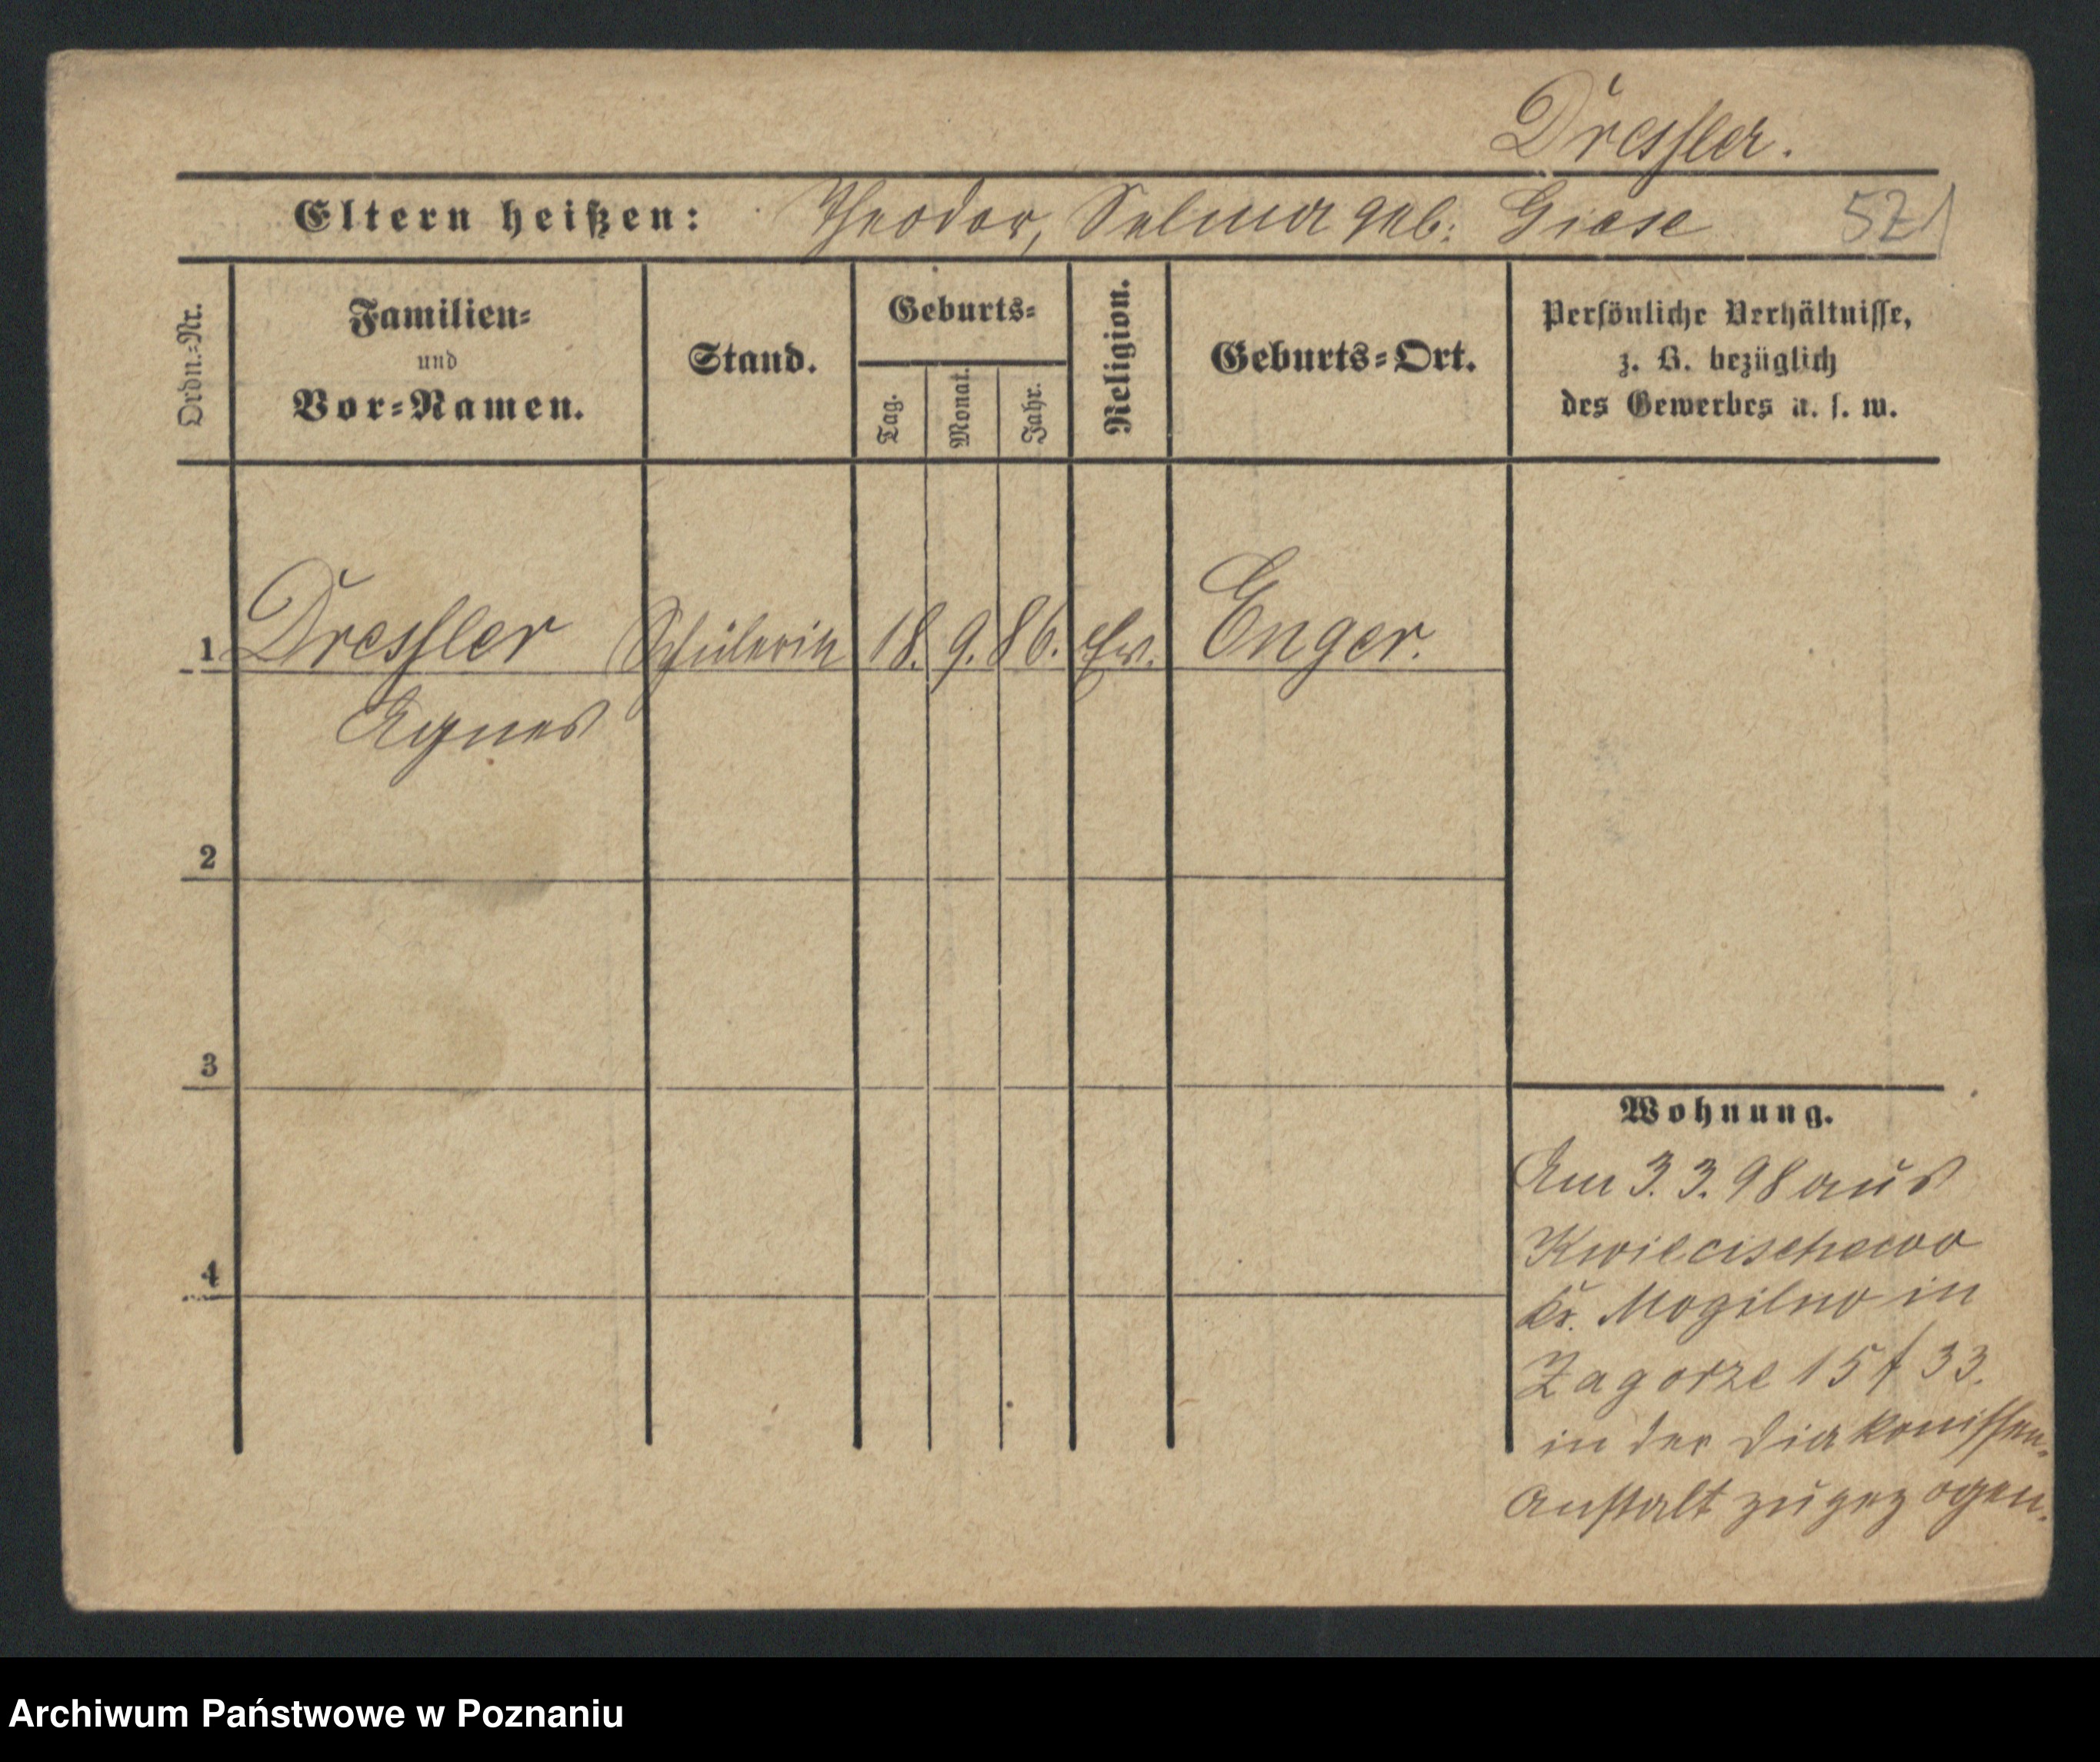 Dressler.
Eltern heißen: Theodor, Selma geb: Giese 521
Ordn.-Nr.
Familien-
und
Vor-Namen.
Stand.
Geburts-
Tag.
Monat.
Jahr.
Religion.
Geburts-Ort.
Persönliche Verhältnisse,
z. B. bezüglich
des Gewerbes u. s. w.
1 Dressler Schülerin 18. 9. 86. Ev. Enger.
Agnes
2
3
4
Wohnung.
Am 3. 3. 98 aus
Kwiecischewo
Kr. Mogilno in
Zagorze 15 33.
in der Diakonissen-
Anstalt zugezogen.
Archiwum Państwowe w Poznaniu